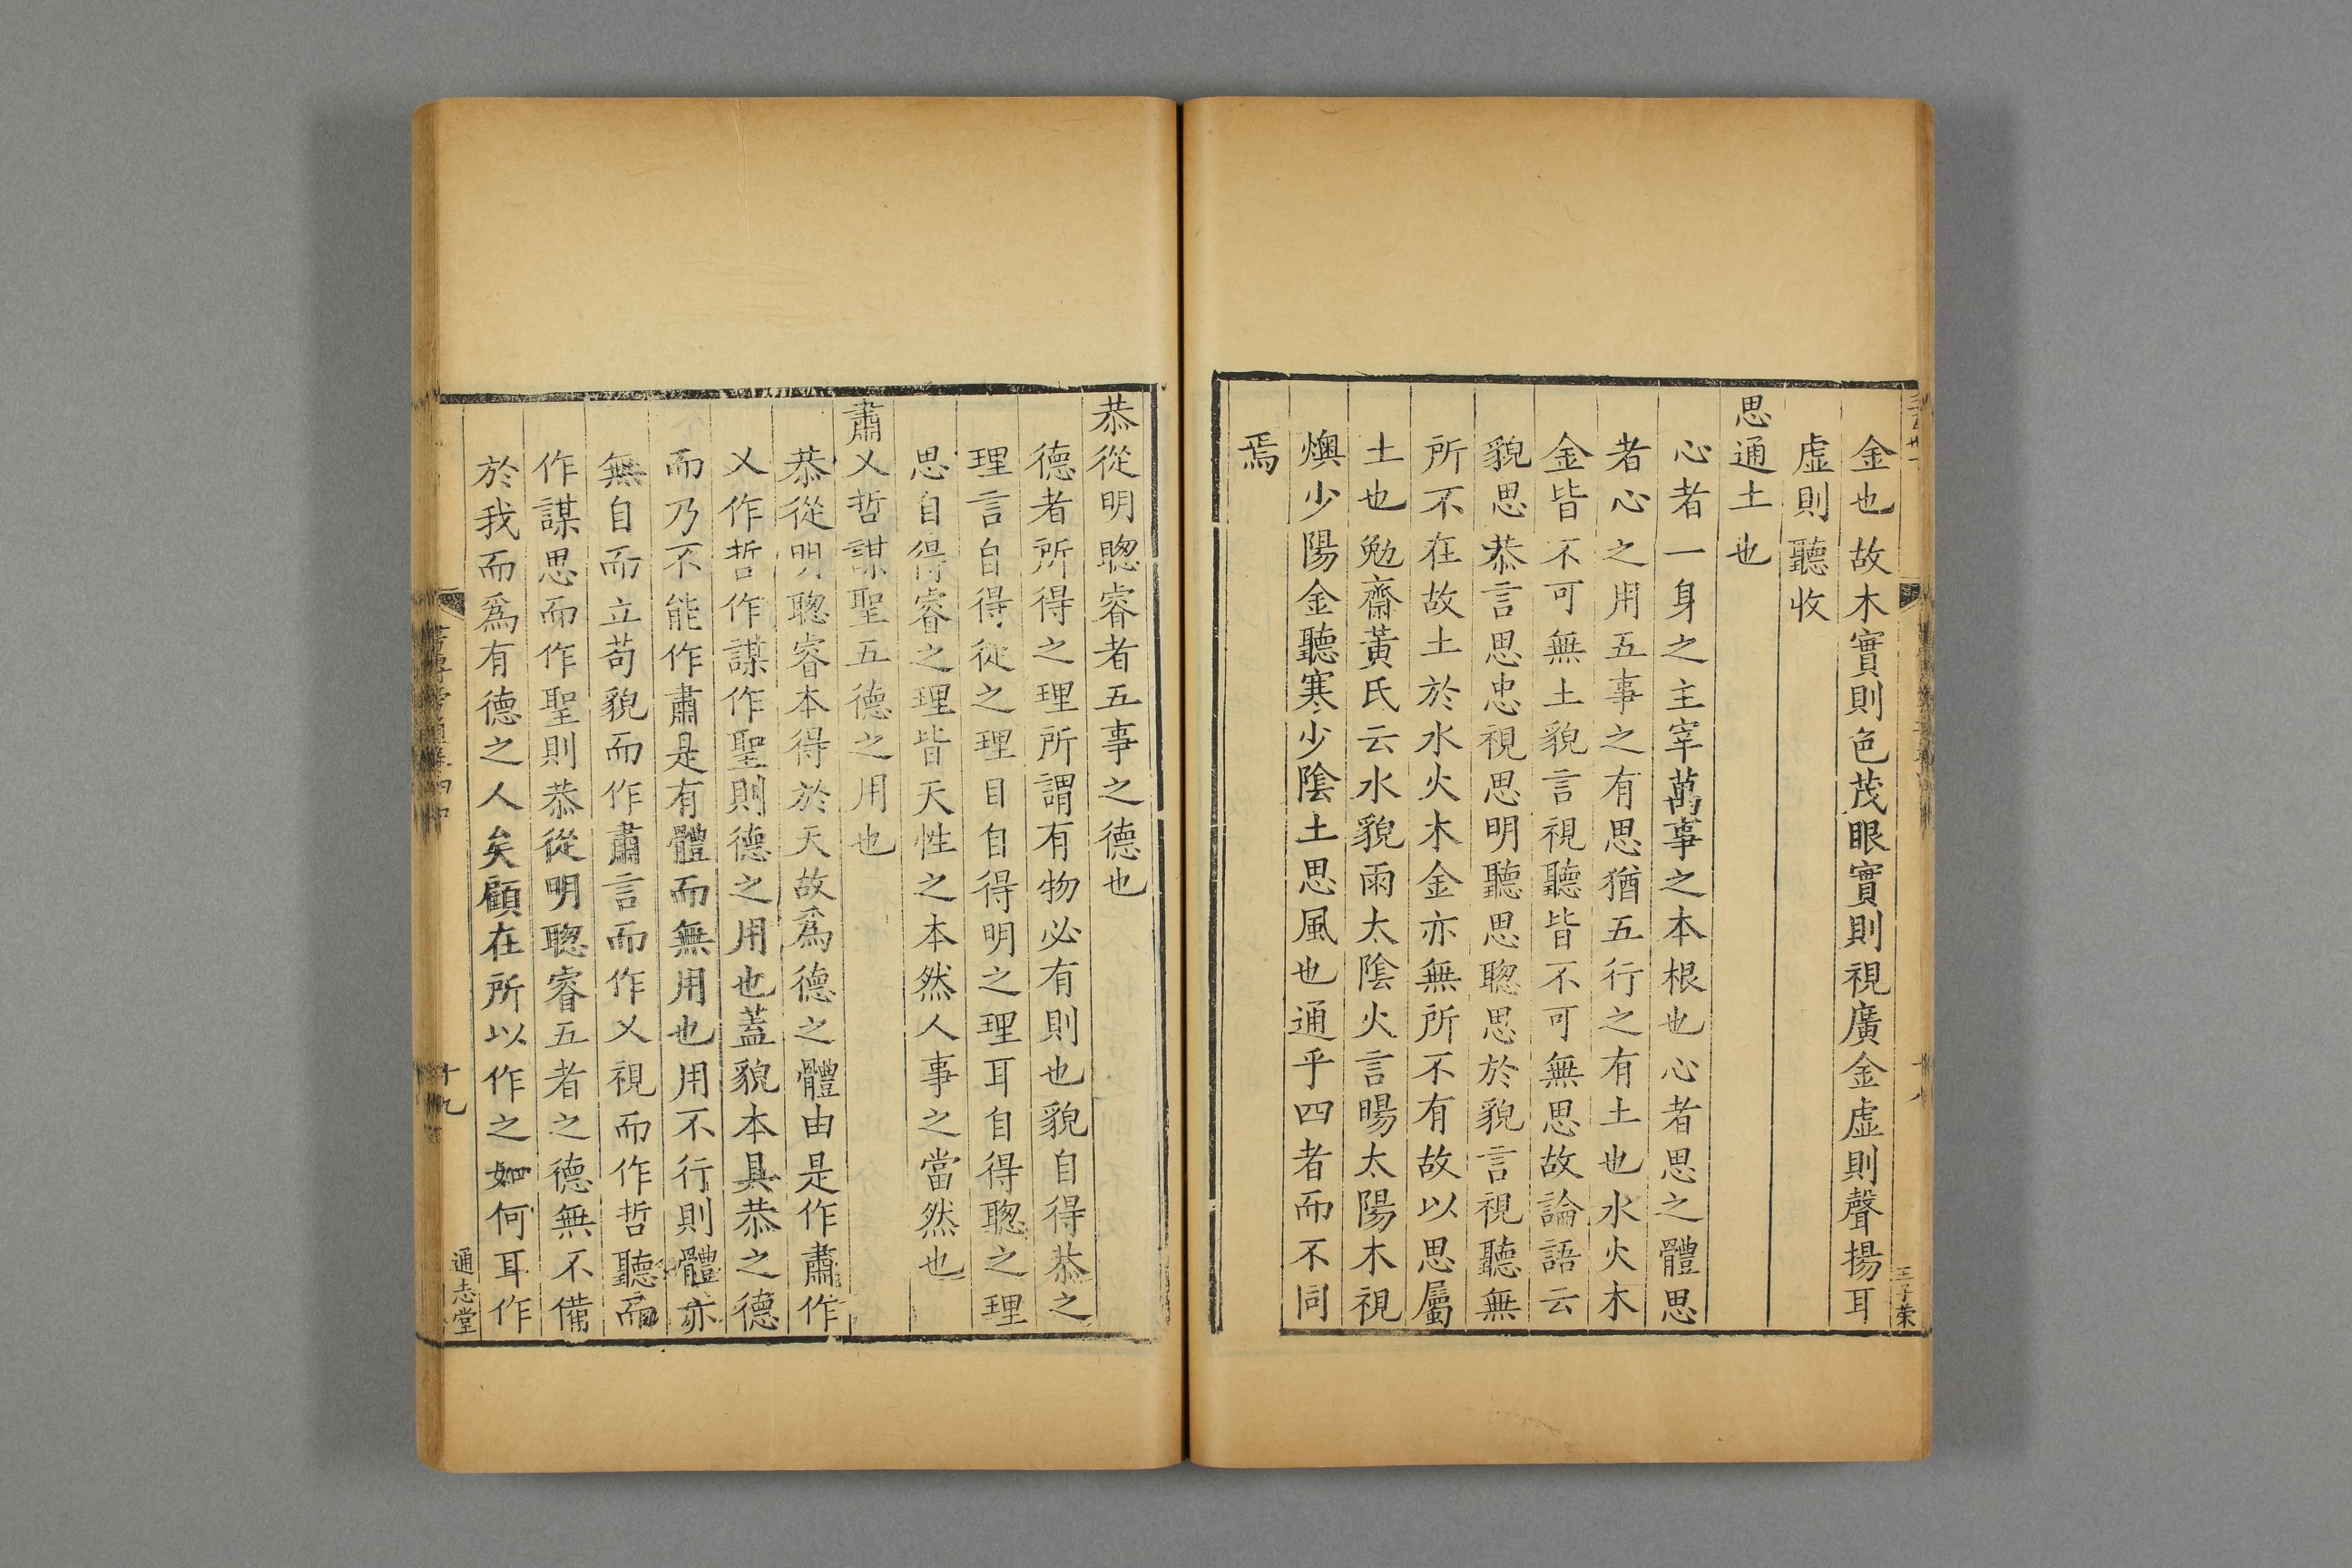 金也故木實則色茂眼實則視廣金虛則聲揚耳
虛則聽收
思通土也
心者一身之主宰萬事之本根也心者思之體思
者心之用五事之有思猶五行之有土也水火木
金皆不可無土貌言視聽皆不可無思故論語云
貌思恭言思忠視思明聽思聰思於貌言視聽無
所不在故土於水火木金亦無所不有故以思屬
土也勉齋黃氏云水貌雨太陰火言暘太陽木視
燠少陽金聽寒少陰土思風也通乎四者而不同
焉
王子榮
恭從明聦睿者五事之德也
德者所得之理所謂有物必有則也貌自得恭之
理言自得從之理目自得明之理耳自得聦之理
思自得睿之理皆天性之本然人事之當然也
肅乂哲謀聖五德之用也
恭從明聦睿本得於天故爲德之體由是作肅作
乂作哲作謀作聖則德之用也蓋貌本具恭之德
而乃不能作肅是有體而無用也用不行則體亦
無自而立苟貌而作肅言而作乂視而作哲聽而
作謀思而作聖則恭從明聦睿五者之德無不備
於我而爲有德之人矣顧在所以作之如何耳作
十九
通志堂